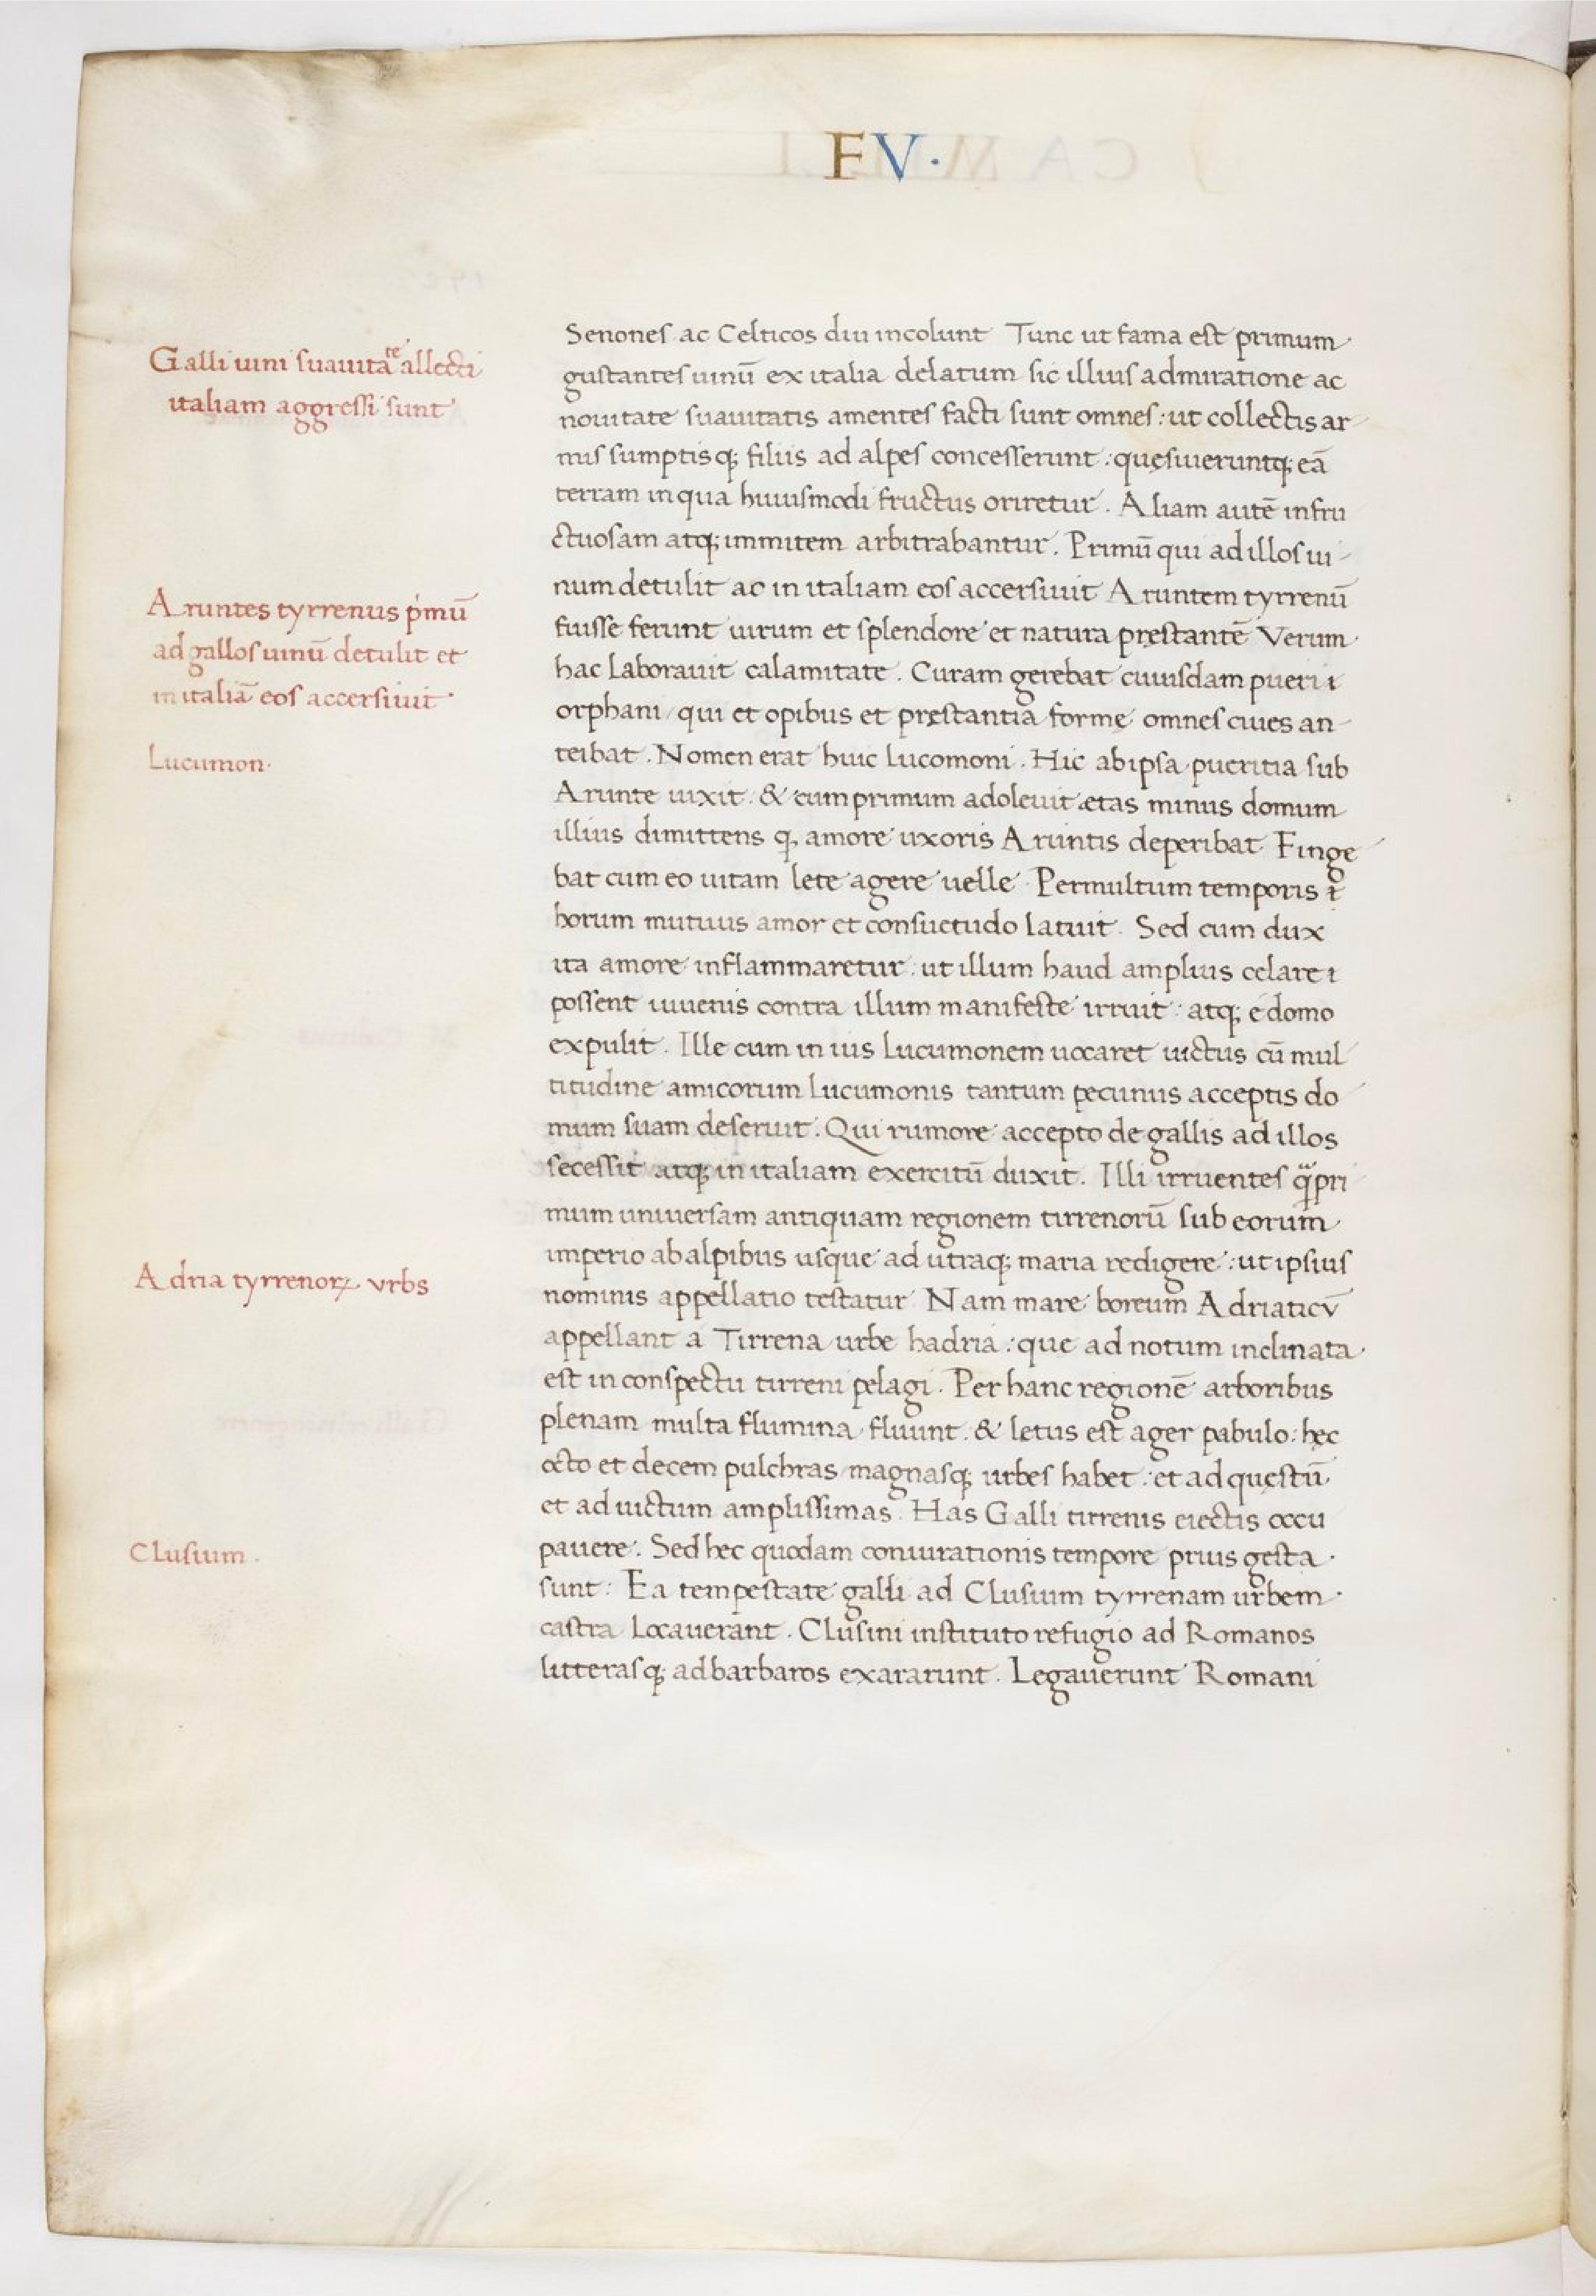 FV·
Galli uini suauitate allecti
italiam aggressi sunt
Aruntes tyrrenus pͥmū
ad gallos uinū detulit et
in italiā eos accersiuit
Lucumon·
Adria tyrrenorꝝ vrbs
Clusium.
Senones ac Celticos diu incolunt Tunc ut fama est primum
gustantes uinū ex italia delatum sic illius admiratione ac
nouitate suauitatis amentes facti sunt omnes: ut collectis ar
mis sumptisq; filiis ad alpes concesserunt: quęsiueruntq; eā
terram in qua huiusmodi fructus oriretur. Aliam autē infru
ctuosam atq; immitem arbitrabantur. Primū qui ad illos ui-
num detulit ac in italiam eos accersiuit Aruntem tyrrenū
fuisse ferunt uirum et splendore et natura pręstantē Verum
hac laborauit calamitate. Curam gerebat cuiusdam pueri
orphani/ qui et opibus et pręstantia formę omnes ciues an-
teibat. Nomen erat huic lucomoni. Hic ab ipsa pueritia sub
Arunte uixit. & cum primum adoleuit ætas minus domum
illius dimittens ꝙ amore uxoris Aruntis deperibat Finge
bat cum eo uitam lete agere uelle Permultum temporis
horum mutuus amor et consuetudo latuit. Sed cum dux
ita amore inflammaretur: ut illum haud amplius celare
possent iuuenis contra illum manifeste irruit: atq; e domo
expulit. Ille cum in ius Lucumonem uocaret uictus cū mul
titudine amicorum lucumonis tantum pecuniis acceptis do
mum suam deseruit. Qui rumore accepto de gallis ad illos
secessit atq; in italiam exercitū duxit. Illi irruentes qͣpri
mum uniuersam antiquam regionem tirrenorū sub eorum
imperio ab alpibus usque ad utraq; maria redigere: ut ipsius
nominis appellatio testatur Nam mare boreum Adriaticv̄
appellant a Tirrena urbe hadria: que ad notum inclinata
est in conspectu tirreni pelagi. Per hanc regionē arboribus
plenam multa flumina fluunt. & letus est ager pabulo: hęc
octo et decem pulchras magnasq; urbes habet: et ad quęstū
et ad uictum amplissimas. Has Galli tirrenis eiectis occu
pauere. Sed hec quodam coniurationis tempore prius gesta
sunt: Ea tempestate galli ad Clusium tyrrenam urbem
castra Locauerant. Clusini instituto refugio ad Romanos
litterasq; ad barbaros exararunt. Legauerunt Romani